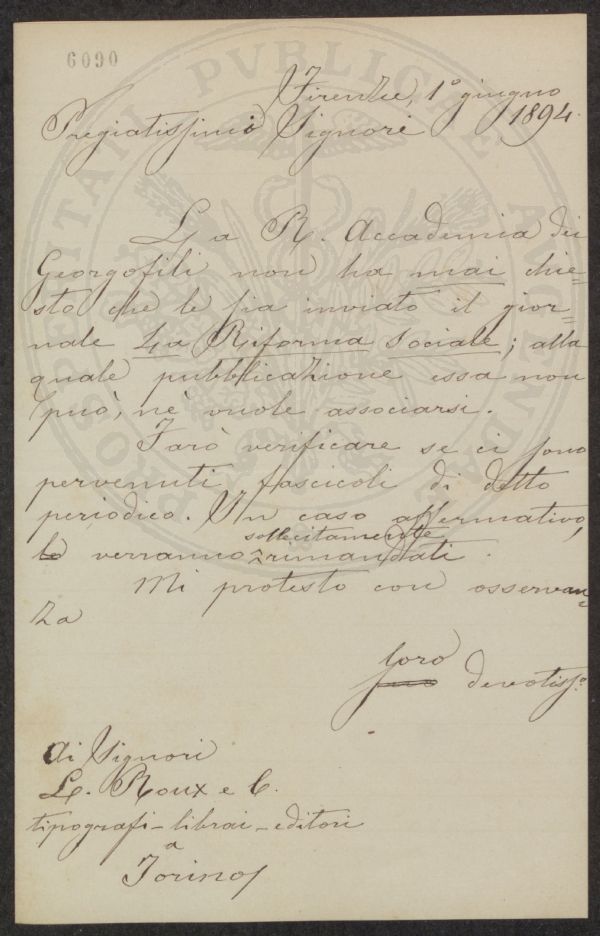 6090
Firenze, 1° giugno
1894.
Pregiatissimi Signori
La R. Accademia dei
Georgofili non ha mai chie=
sto che le sia inviato il gior=
nale La Riforma Sociale; alla
quale pubblicazione essa non
può, nè vuole associarsi.
Farò verificare se ci sono
pervenuti fascicoli di detto
periodico. In caso affermativo,
sollecitamente
verranno rimandati.
Mi protesto con osservan=
za
loro
devotiss°
Ai Signori
L. Roux e C.
tipografi-librai-editori
a
Torino
PROSPERITATI PVBLICAE AVGENDAE